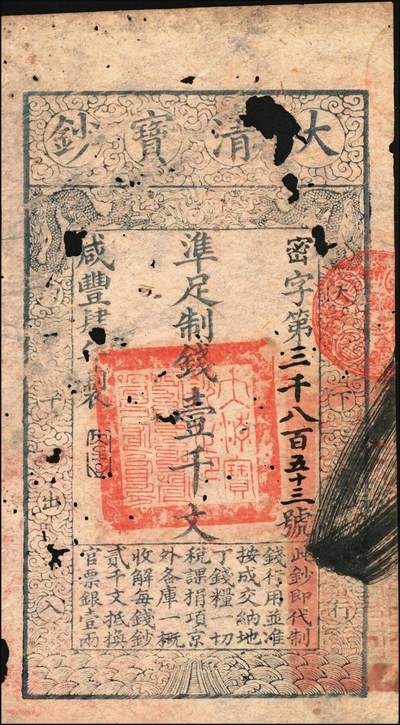 大清寶鈔
密字第三千八百五十三號
準足制錢壹千文
咸豐肆年製
天下
行
平出入
此鈔即代制
錢行用並准
按成交納地
丁錢糧一切
稅課捐項京
外各庫一概
收解每錢鈔
貳千文抵換
官票銀壹兩